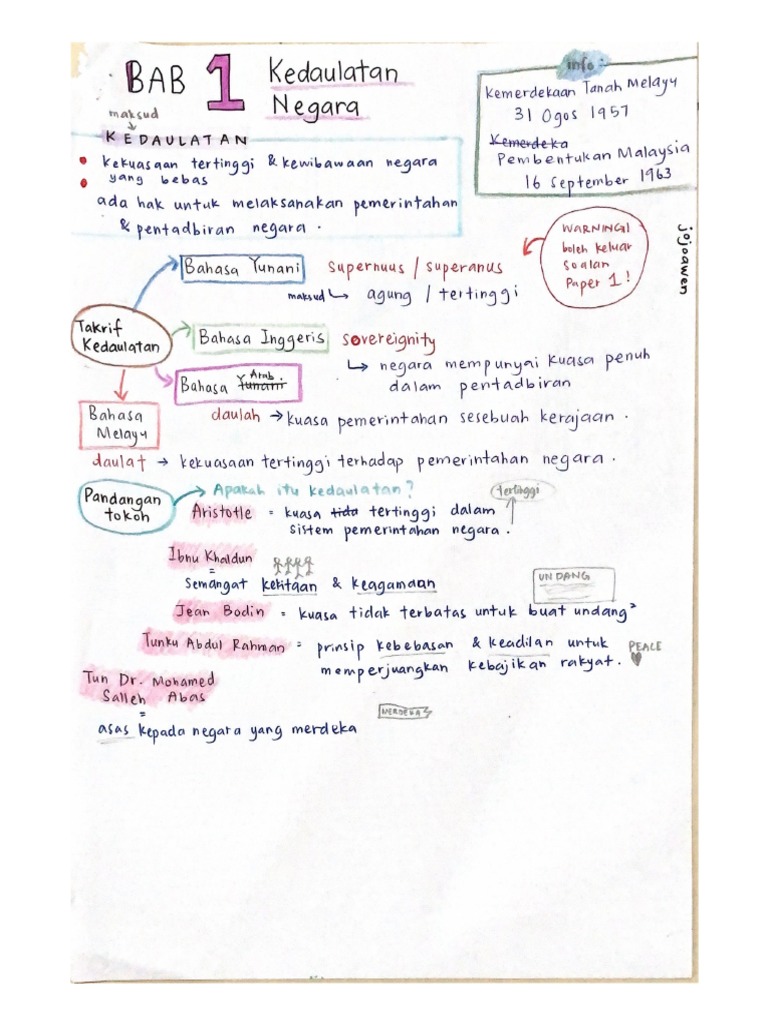 BAB 1 Kedaulatan
Negara
info :
Kemerdekaan Tanah Melayu
31 Ogos 1957
Kemerdeka
Pembentukan Malaysia
16 September 1963
maksud
KEDAULATAN
kekuasaan tertinggi & kewibawaan negara
yang bebas
ada hak untuk melaksanakan pemerintahan
& pentadbiran negara.
WARNING!
boleh keluar
soalan
Paper 1!
jojoawen
Takrif
Kedaulatan
Bahasa Yunani supernuus / superanus
maksud agung / tertinggi
Bahasa Inggeris sovereignity
negara mempunyai kuasa penuh
dalam pentadbiran
Bahasa Yunani Arab
daulah → kuasa pemerintahan sesebuah kerajaan.
Bahasa
Melayu
daulat → kekuasaan tertinggi terhadap pemerintahan negara.
Pandangan
tokoh
Apakah itu kedaulatan?
tertinggi
Aristotle = kuasa tida tertinggi dalam
sistem pemerintahan negara.
Ibnu Khaldun
=
Semangat kekitaan & keagamaan
UNDANG
Jean Bodin = kuasa tidak terbatas untuk buat undang²
Tunku Abdul Rahman = prinsip kebebasan & keadilan untuk
memperjuangkan kebajikan rakyat.
PEACE
Tun Dr. Mohamed
Salleh Abas
=
MERDEKA
asas kepada negara yang merdeka